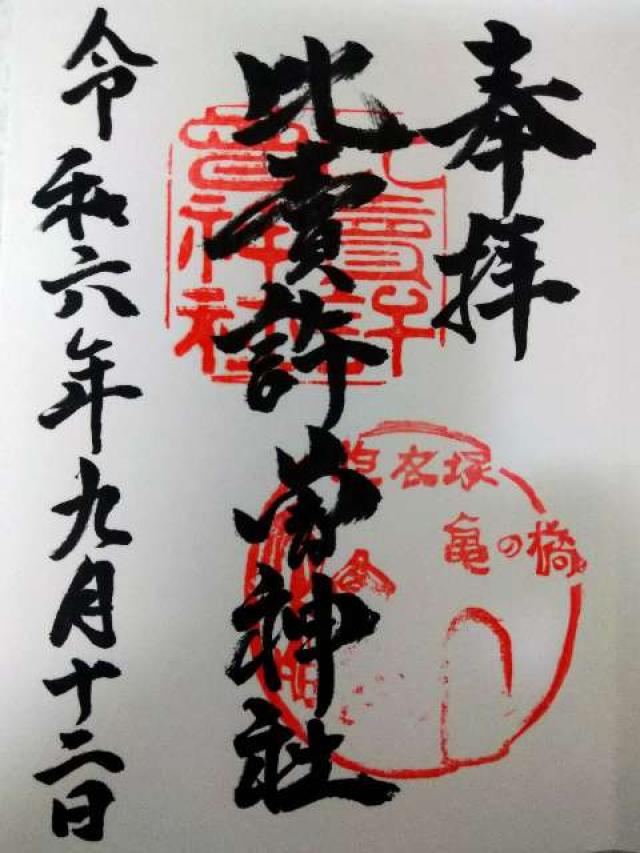 奉拝
比賣許曽神社
令和六年九月十二日
比賣許
曽神社
胞衣塚
亀の橋